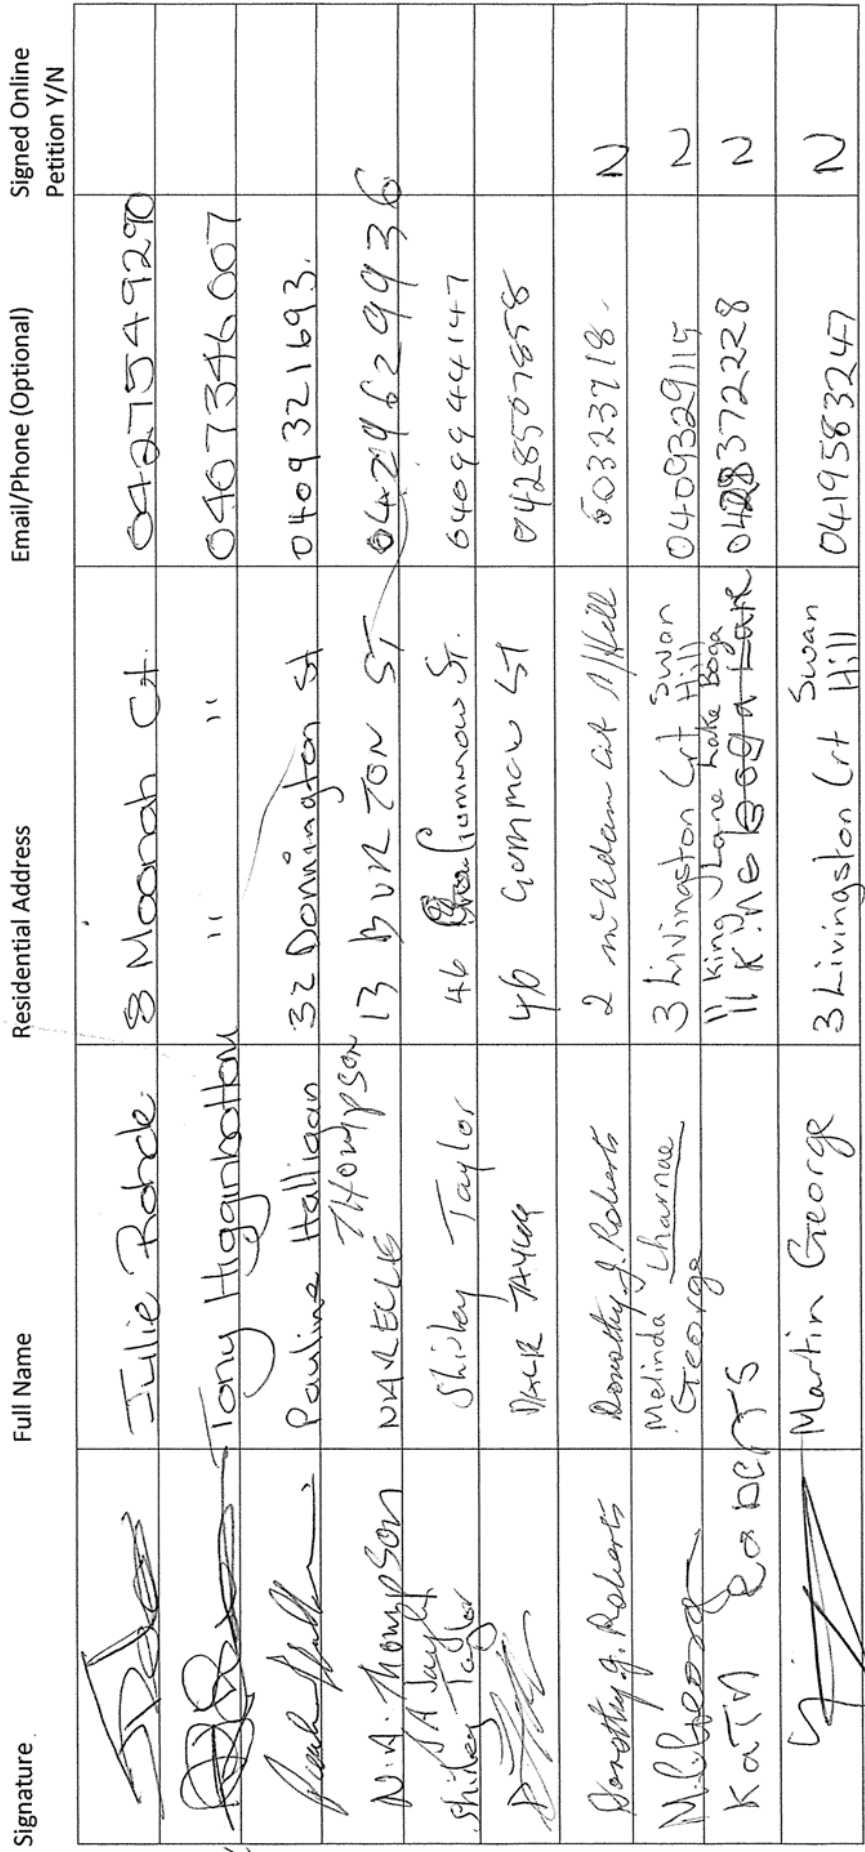 Signature Full Name Residential Address Email/Phone (Optional) Signed Online Petition Y/N
Julie Rohde 8 Moonah Ct. 0427549290
Tony Higginbottom " " 0467346007
Pauline Halligan 32 Donnington St 0409321693.
N.A. Thompson NARELLE THOMPSON 13 BURTON ST 0429629936
S A Taylor
Shirley Taylor Shirley Taylor 46 Gummow St. 0409944147
TAYLOR 46 Gummow ST 0428507858
Dorothy J. Roberts Dorothy J. Roberts 2 McAdam Crt S/Hill 50323718. N
M.C. George Melinda Charnae George 3 Livingston Crt Swan Hill 0409329115 N
Kath Roberts 11 King Lane Lake Boga 0428372228 N
Martin George 3 Livingston Crt Swan Hill 0419583247 N